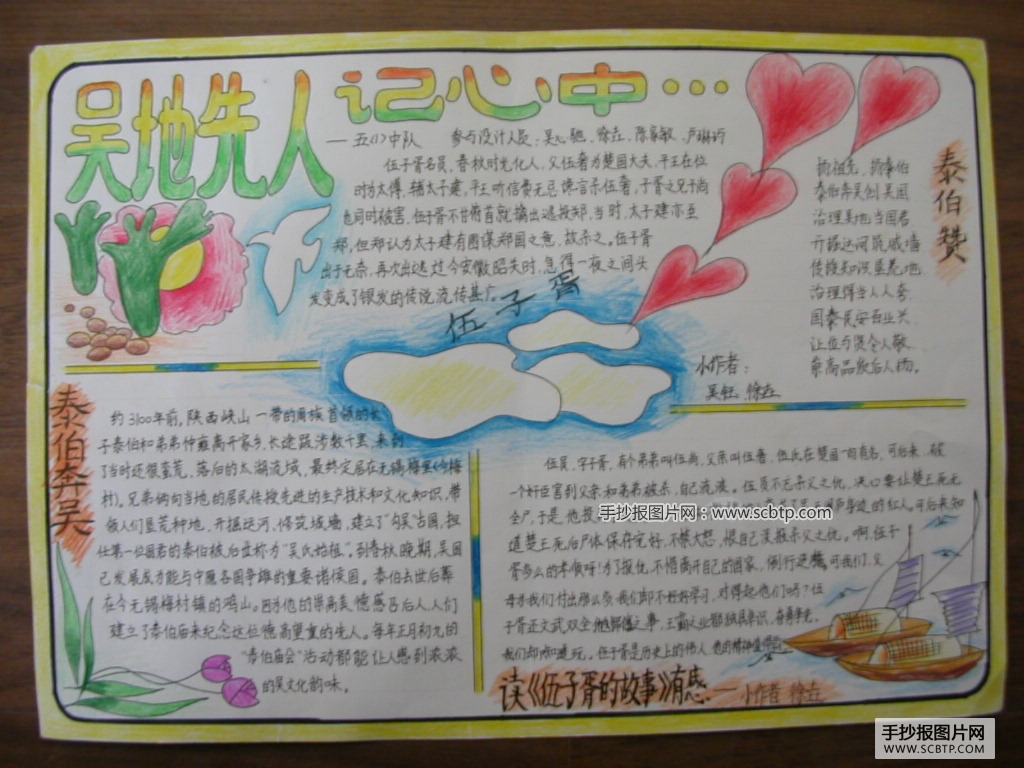 吴地先人记心中…
—五(1)中队 参与设计人员:吴心驰、徐垚、陈家敏、卢琳巧
伍子胥名员,春秋时党化人,父伍奢为楚国大夫,平王在位
时为太傅,辅太子建,平王听信费无忌谗言杀伍奢,子胥之兄子尚
也同时被害,伍子胥不甘俯首就擒出逃投郑,当时,太子建亦至
郑,但郑认为太子建有图谋郑国之意,故杀之。伍子胥
出于无奈,再次出逃,过今安徽昭关时,急得一夜之间头
发变成了银发的传说流传甚广。
伍子胥
泰伯赞
泰伯奔吴创吴国
治理吴地当国君
开掘运河筑城墙
传授知识垦荒地
治理得当人人夸
国泰民安百业兴
让位与贤令人敬
崇高品故后人扬。
小作者:
吴钰 徐垚
泰伯奔吴
约3100年前,陕西岐山一带的周族首领的长
子泰伯和弟弟仲雍离开家乡,长途跋涉数千里,来到
了当时还很蛮荒、落后的太湖流域,最终定居在无锡梅里(今梅
村)。兄弟俩向当地的居民传授先进的生产技术和文化知识,带
领人们垦荒种地,开掘运河,修筑城墙,建立了“勾吴”古国,担
任第一位国君的泰伯被后世称为“吴氏始祖”。到春秋晚期,吴国
已发展成为能与中原各国争雄的重要诸侯国。泰伯去世后葬
在今无锡梅村镇的鸿山。因为他的崇高美德感召后人,人们
建立了泰伯庙来纪念这位德高望重的先人。每年正月初九的
“泰伯庙会”活动都能让人感到浓浓
的吴文化韵味。
伍员,字子胥,有个弟弟叫伍尚,父亲叫伍奢,伍氏在楚国一向有名,可后来,被
一个奸臣害到父亲和弟弟被杀,自己流浪。伍员不忘杀父之仇,决心要让楚王死无
全尸,于是,他投 的红人。可后来知
手抄报图片网:www.scbtp.com
道楚王死后尸体保存完好,不禁大怒,恨自己没报杀父之仇。啊,伍子
胥多么的孝顺呀!为了报仇,不惜离开自己的国家,倒行逆施,可我们,父
母为我们付出那么多,我们却不好好学习,对得起他们吗?伍
子胥正文武双全
我们却 伍子胥是历史上的伟人,他的精神值得
读《伍子胥的故事》有感 — 小作者 徐垚
手抄报图片网
WWW.SCBTP.COM